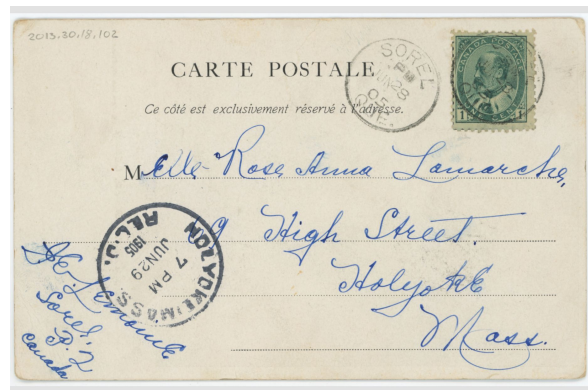 2013.30.18.102
CARTE POSTALE
Ce côté est exclusivement réservé à l'adresse.
SOREL
PM
JUN 28
05
QUE.
CANADA POSTAGE
1 1
Melle Rose Anna Lamarche,
9 High Street.
Holyoke
Mass.
HOLYOKE, MASS.
7 PM
JUN 29
1905
REC'D.
Lemoine
Sorel,
P. Q
Canada